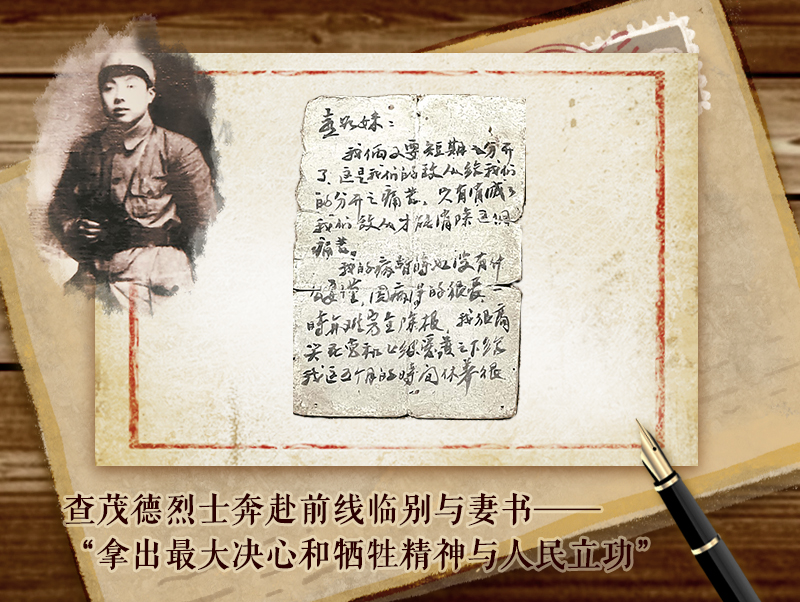 妹：
我俩又要短期之分开
了，这是我们的敌人给我们
的分开之痛苦，只有消灭了
我们敌人才能消除这
痛苦。
我的病暂时也没有什
么要谨，因病得的很
时 难完全除根，我很高
兴在党和上级爱护之下给
我这五个月的时间休养很
查茂德烈士奔赴前线临别与妻书——
“拿出最大决心和牺牲精神与人民立功”